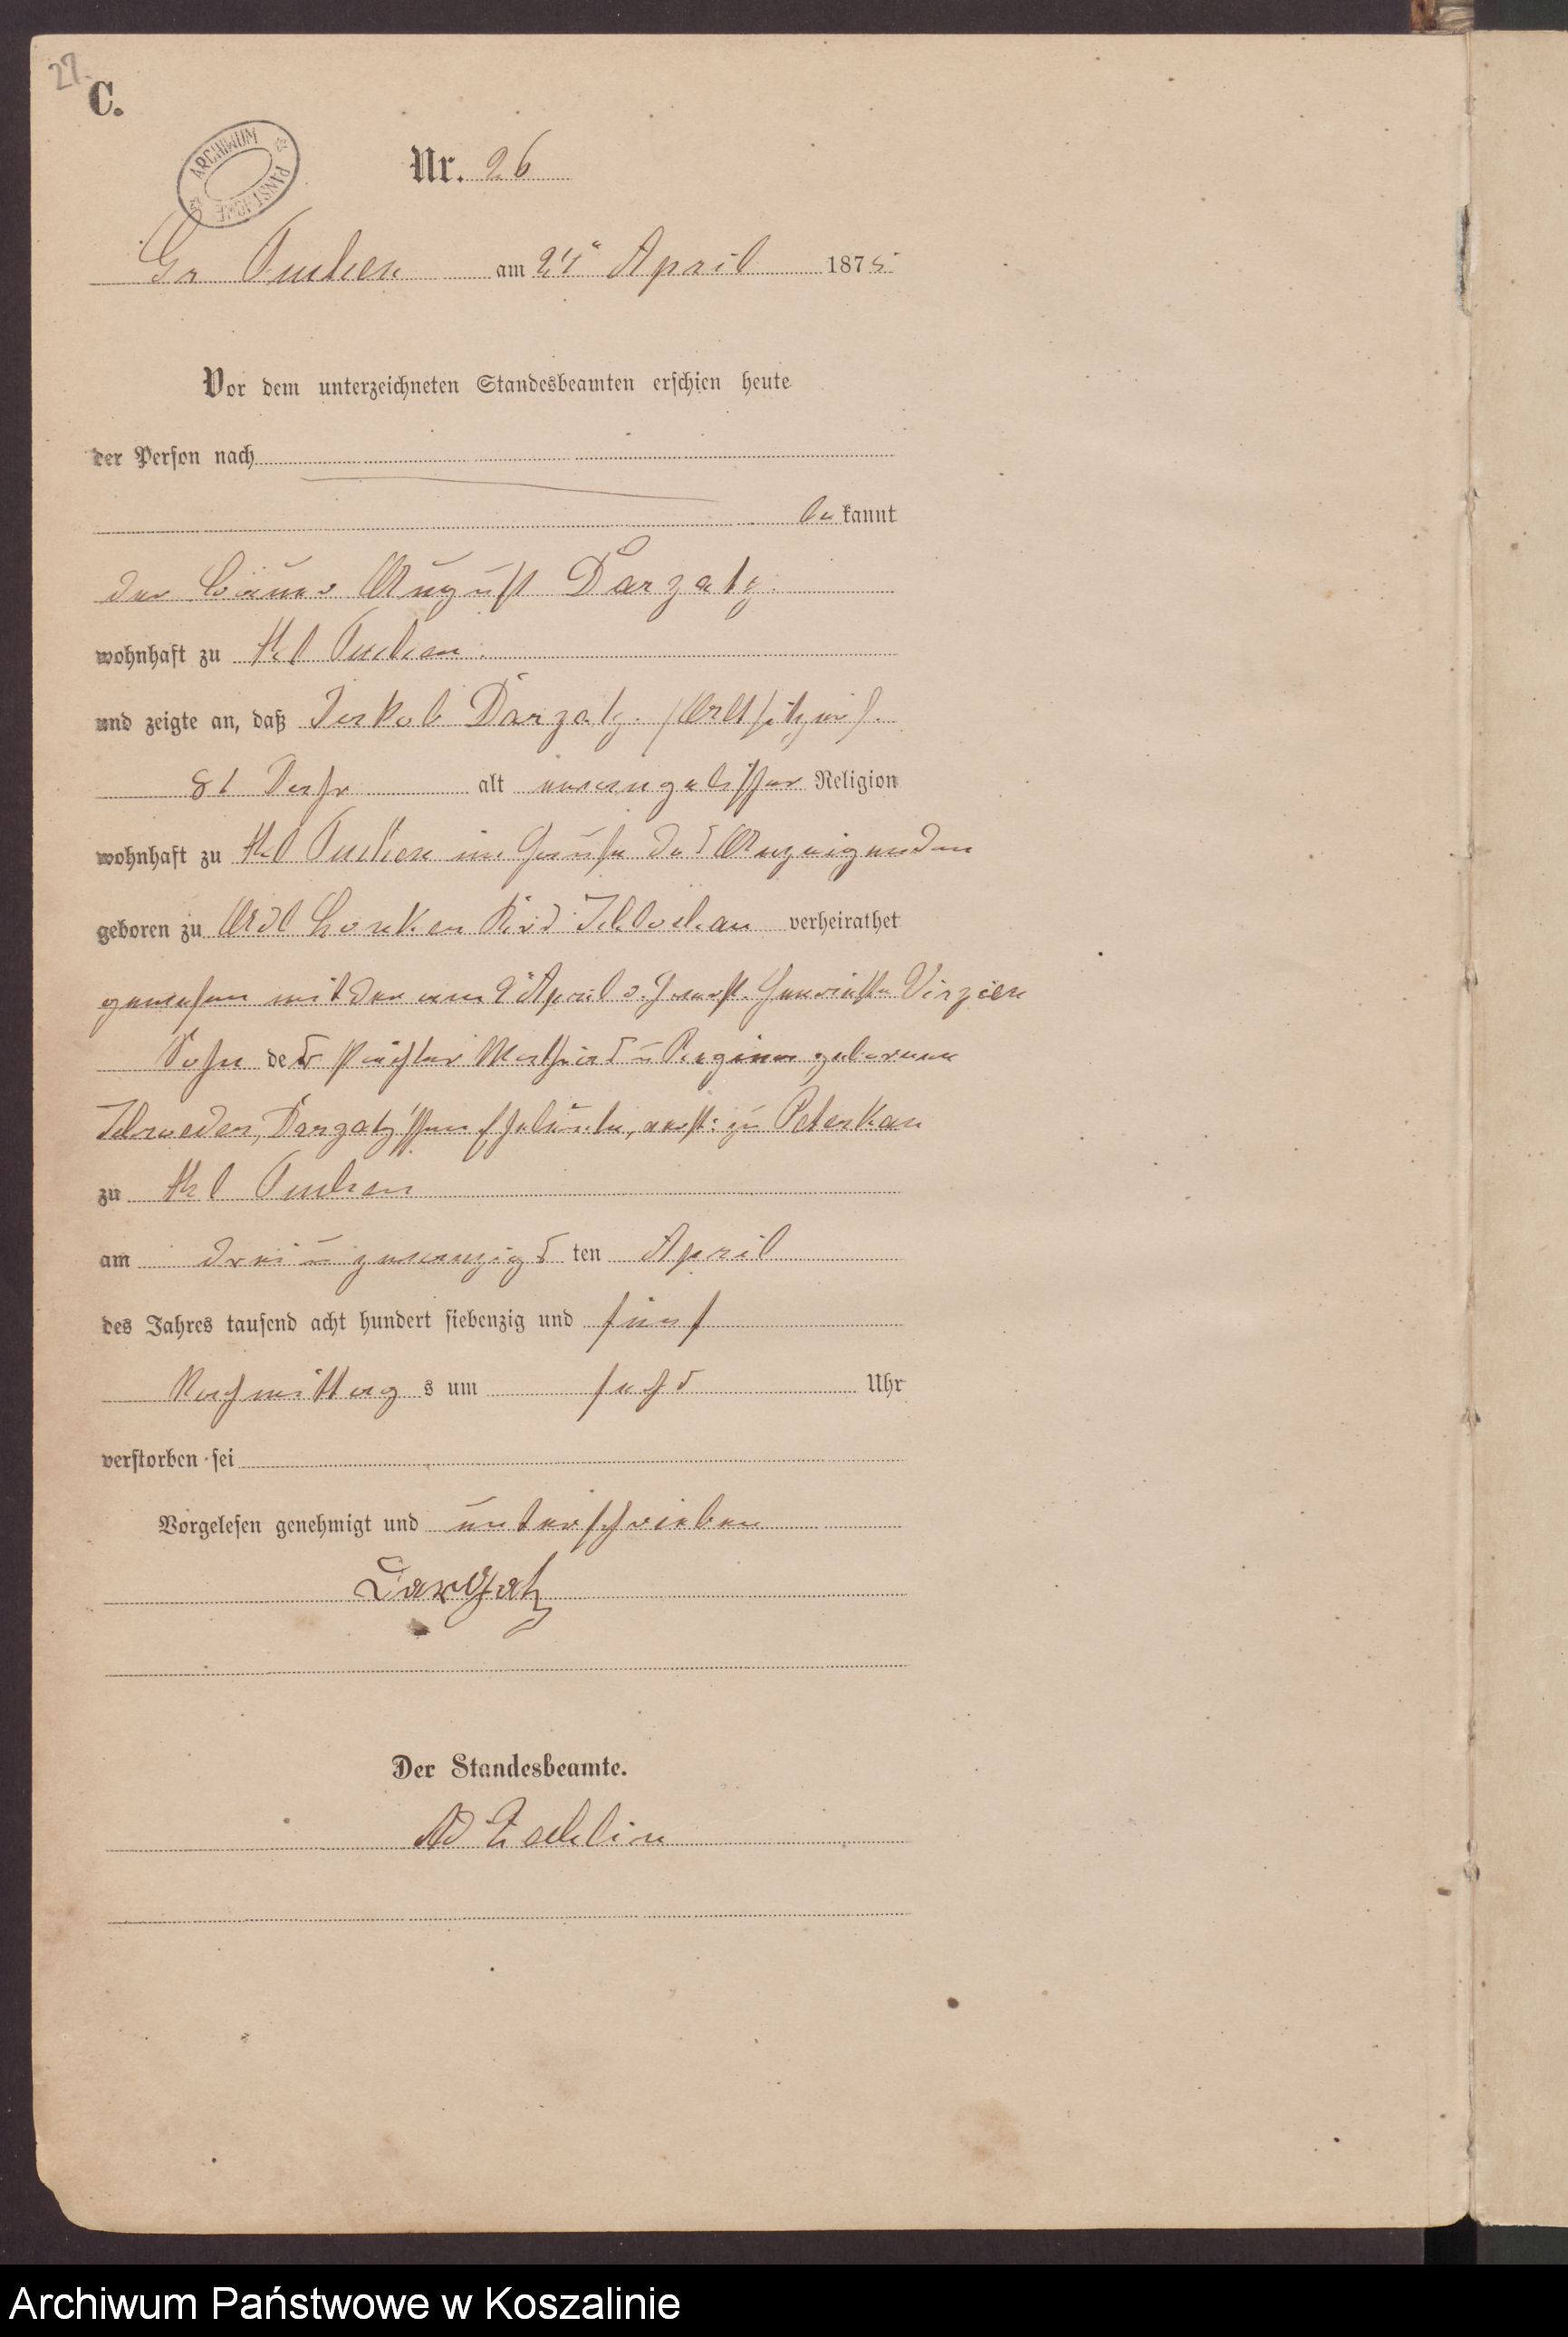 27.
C.
ARCHIWUM PAŃSTWOWE
Nr. 26
Gr Tuchen am 24 April 1875
Vor dem unterzeichneten Standesbeamten erschien heute
der Person nach
be kannt
der Bauer August Darzatz.
wohnhaft zu Kl Tuchen.
und zeigte an, daß Jakob Darzatz. /Altsitzer/.
81 Jahr alt evangelischer Religion
wohnhaft zu Kl Tuchen im Hause des Anzeigenden
geboren zu Adl Schlochau verheirathet
gewesen mit der am April verst. Henriette Virzien
Sohn der Pächter Mathias u Regina geborene
Schroeder, Darzatz'schen Eheleute, verst: zu Peterkau
zu Kl Tuchen
am drei u zwanzigs ten April
des Jahres tausend acht hundert siebenzig und fünf
Nachmittag s um sechs Uhr
verstorben sei
Vorgelesen genehmigt und unterschrieben
Darzatz
Der Standesbeamte.
Archiwum Państwowe w Koszalinie